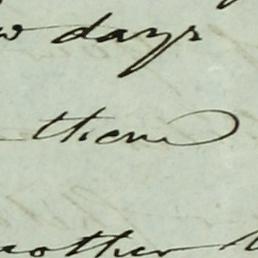 days
them
another